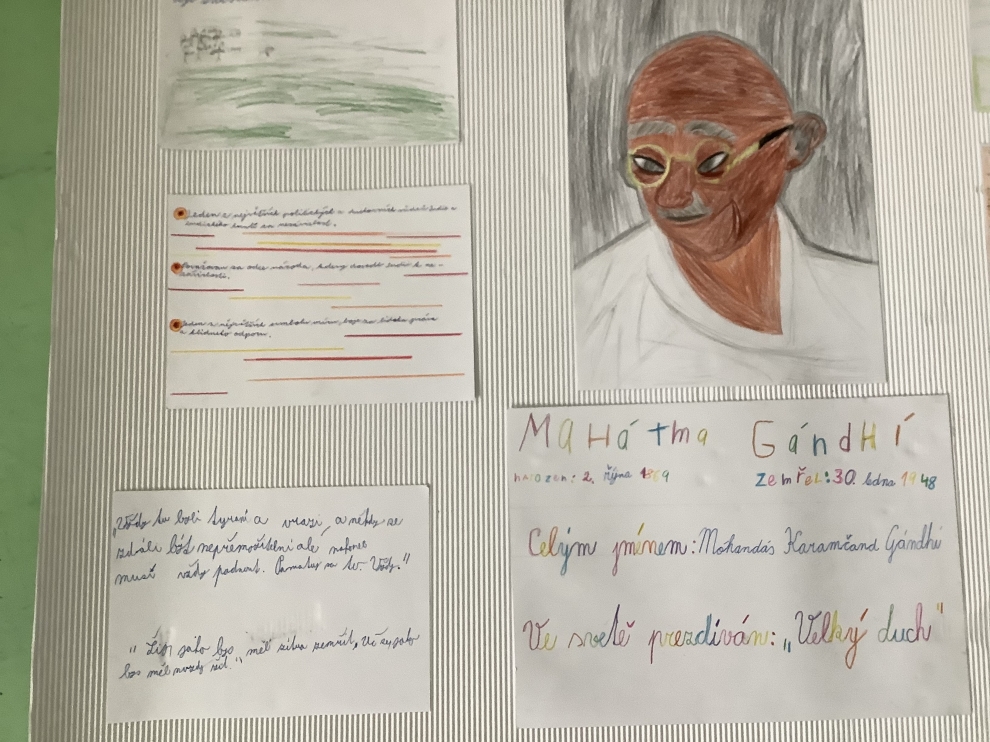 Jeden z největších politických a duchovních vůdců Indie a
indického hnutí za nezávislost.
Považován za otce národa, který dovedl Indii k ne-
závislosti.
Jeden z největších symbolů míru, boje za lidská práva
a klidného odporu.
Mahátma Gándhí
narozen: 2. října 1869
zemřel: 30. ledna 1948
Celým jménem: Mohandás Karamčand Gándhí
Ve světě přezdíván: „Velký duch"
„Vždy tu byli tyrani a vrazi, a někdy se
zdáli být nepřemožitelní ale nakonec
musí vždy padnout. Pamatuj na to - Vždy."
" Žij jako bys měl zítra zemřít, Uč se jako
bys měl navždy žít."